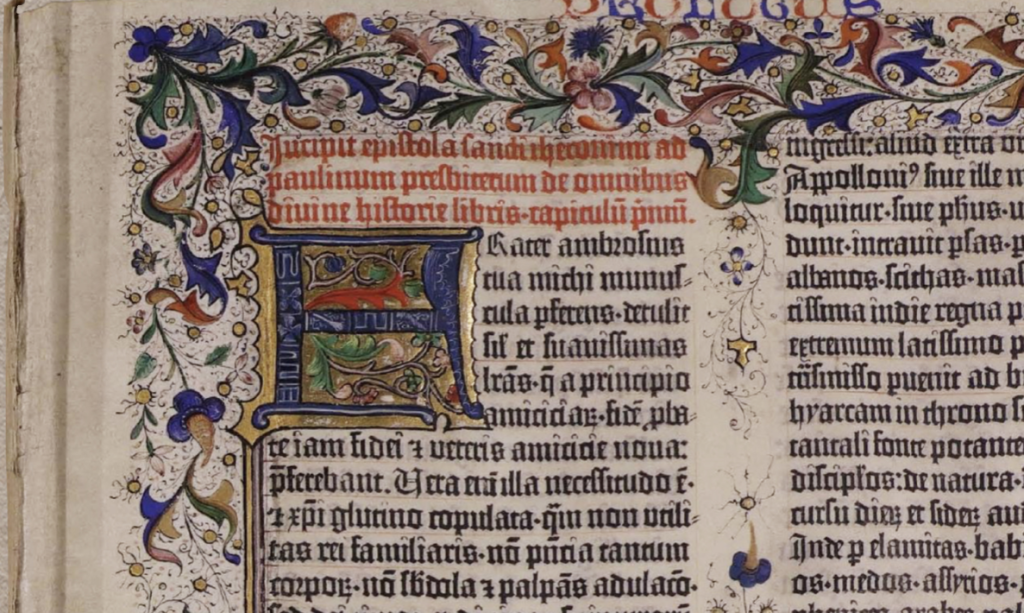 Incipit epistola sancti iheronimi ad
paulinum presbiterum de omnibus
diuine historie libris·capitulū p̄mū.
FRater ambrosius
tua michi munus-
cula p̲ferens·detulit
sil̄ et suauissimas
lr̄as·q̄ a principio
amiciciaꝝ·fidē ꝓba-
te iam fidei ⁊ veteris amicicie noua:
p̄ferebant. Uera eni̅ illa necessitudo ē·
⁊ xp̄i glutino copulata·q̄m non vtili-
tas rei familiaris·nō pn̄tia tantum
corpoꝝ·nō sb̄dola ⁊ palpās adulacō·
ingressus·aliud extra
Appolloniꝰ siue ille
loquitur·siue ph̄us·
dunt·intrauit p̲sas·
albanos·scithas·
tissima indie regna
extremum latissimo
trāsmisso puenit ad
hyarcam in throno
tantali fonte
discip̄los: de natura·
cursu dieꝝ et sideꝝ
Inde p̲ elamitas·
os·medos·assyrios·